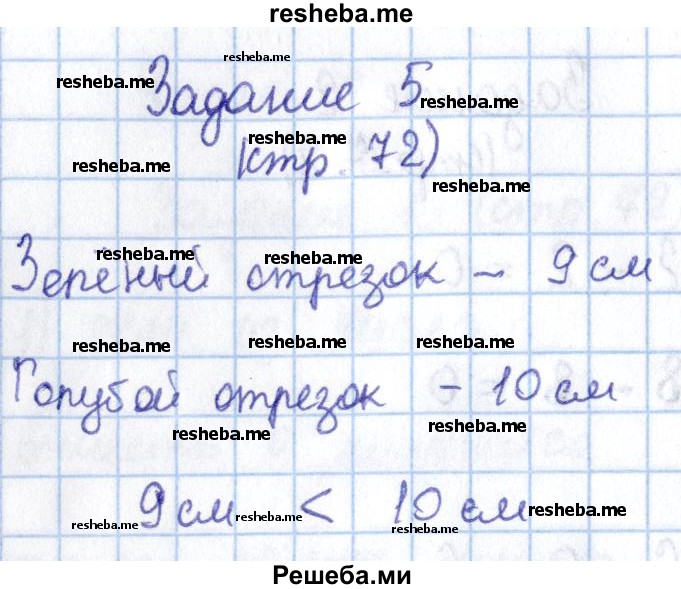 resheba.me
resheba.me
resheba.me
Задание 5
resheba.me
resheba.me
resheba.me
(стр. 72)
resheba.me
resheba.me
resheba.me
Зелёный отрезок – 9 см
resheba.me
resheba.me
resheba.me
Голубой отрезок – 10 см
resheba.me
resheba.me
9 см < 10 см
resheba.me
resheba.me
resheba.me
resheba.me
Решеба.ми